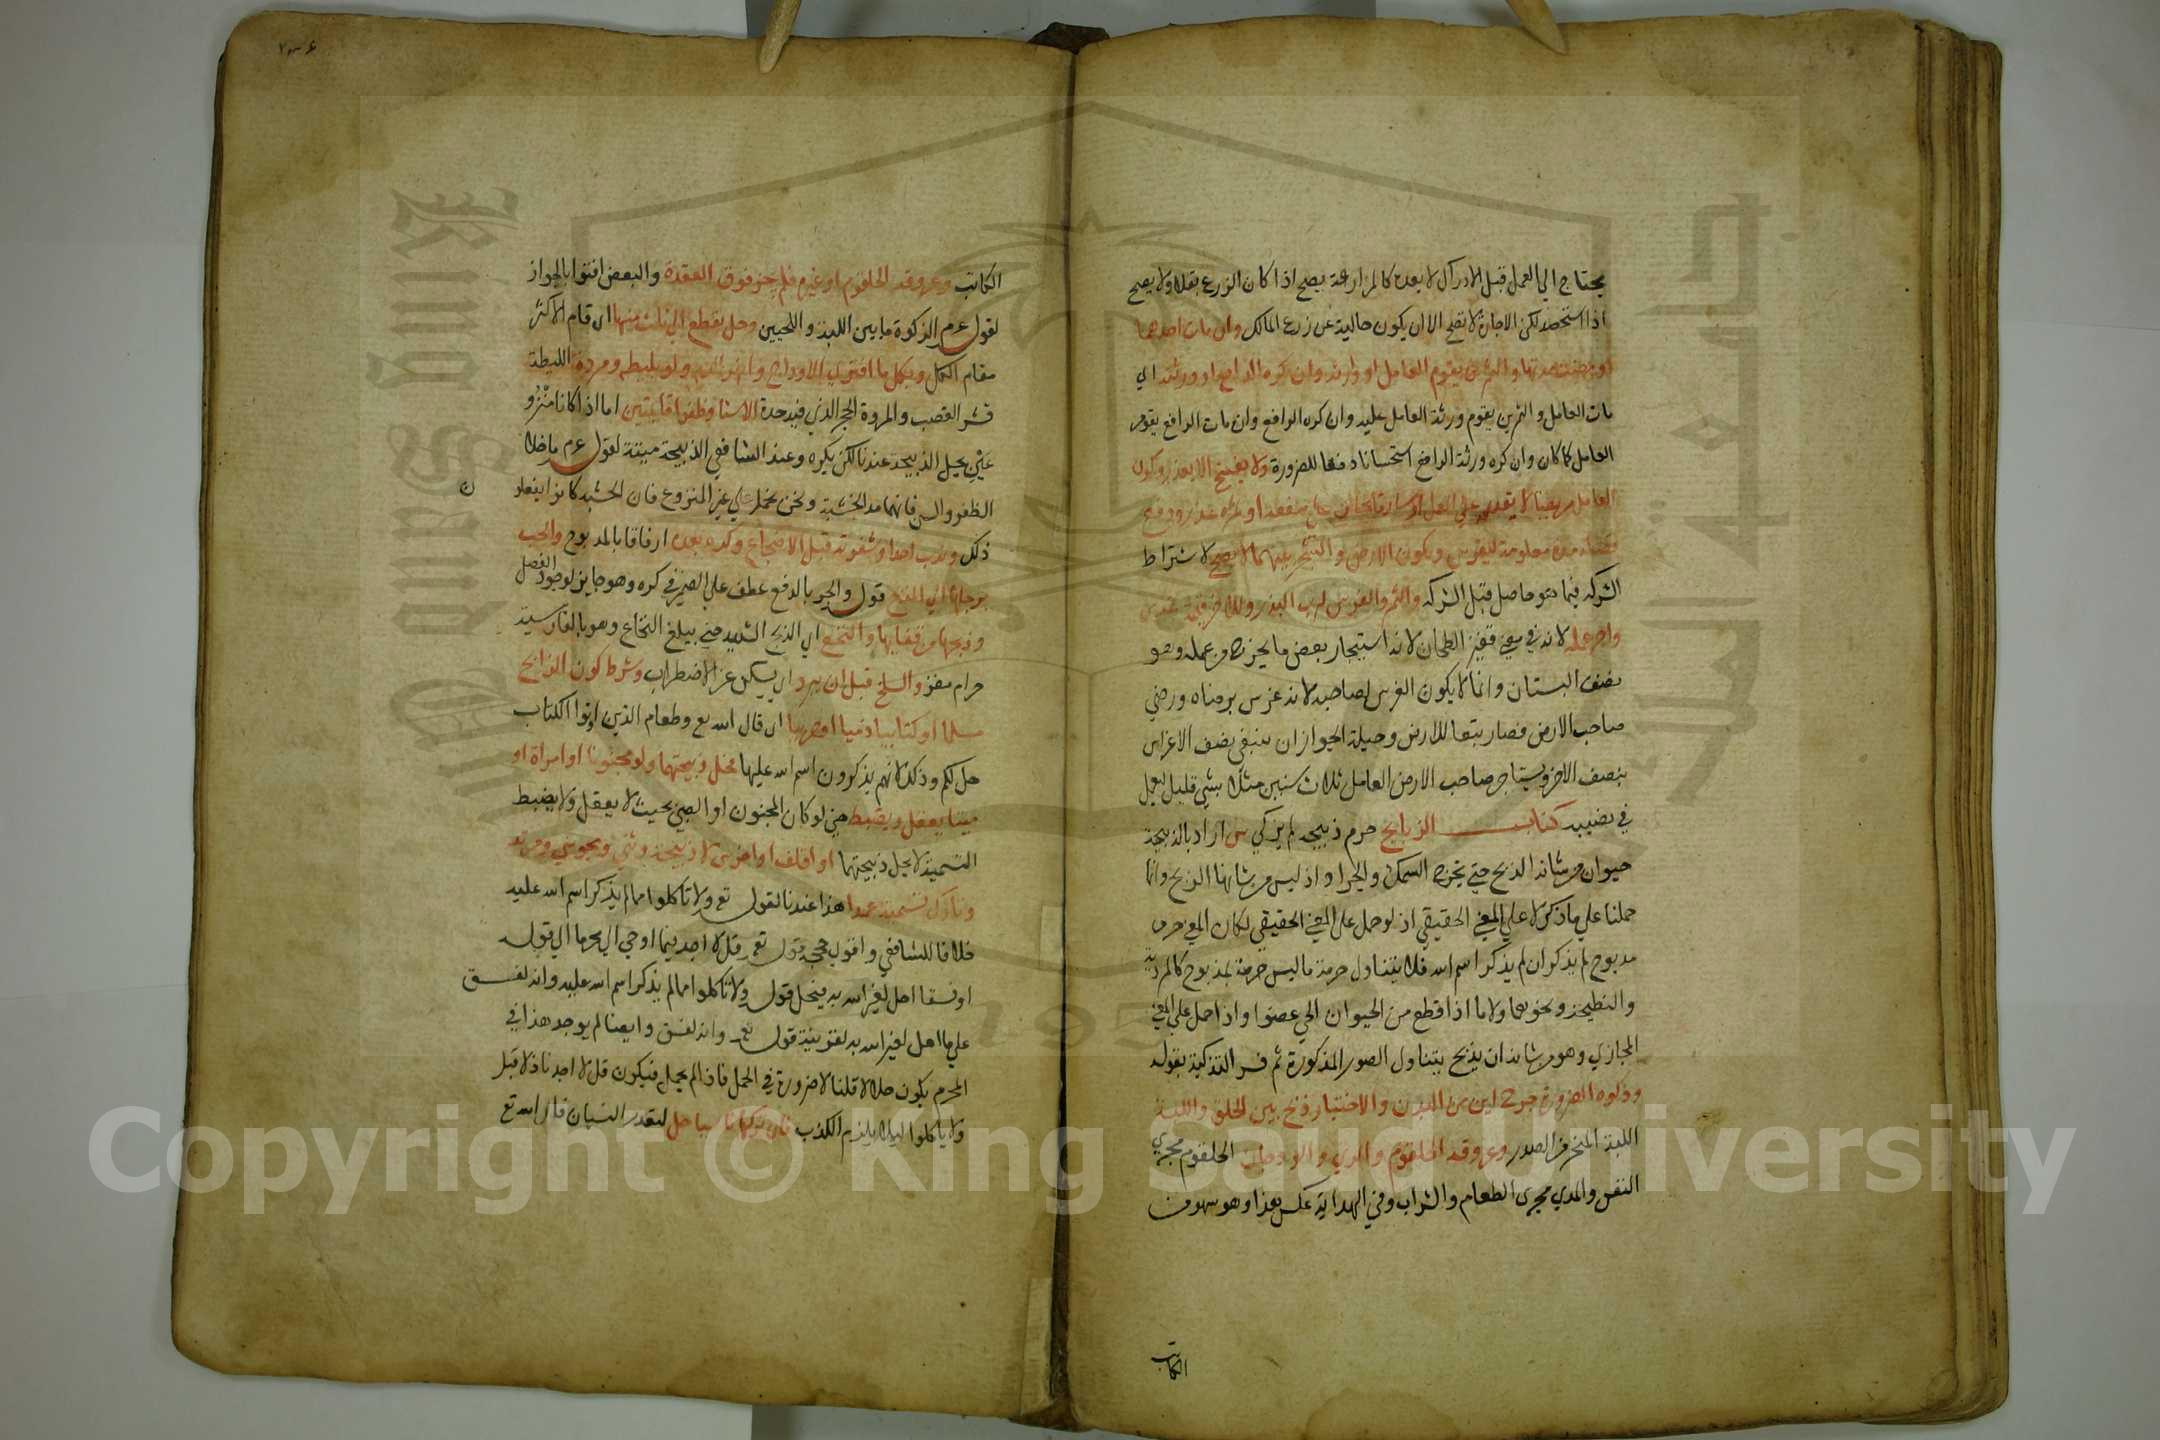 يحتاج الي العمل قبل الادراك لا بعده كالمزارعة يصح اذا كان الزرع بقلا ولا يصح
اذا استحصد لكن الاجارة لا تصح الا ان يكون خالية عن زرع المالك وان مات احدهما
او مضت مدتها والثمر ني يقوم العامل او وارثه وان كره الدافع او ورثته اي
مات العامل والثمر ني يقوم ورثة العامل عليه وان كره الدافع وان مات الدافع يقوم
العامل كما كان وان كره ورثة الدافع استحسانا دفعا للضرورة ولا يفسخ الا بعذر وكون
العامل مريضا لا يقدر علي العمل او سارقا يخاف علي سعفه او ثمره عذر ودفع
فضاء مدة معلومة ليغرس ويكون الارض والشجر بينهما لا يصح لاشتراط
الشركه فيما هو حاصل قبل الشركه والثمر والغرس لرب الارض وللاخر قيمة غرسه
واجر عمله لانه في معني قفيز الطحان لانه استيجار ببعض ما يخرج من عمله وهو
نصف البستان وانما لا يكون الغرس لصاحبه لانه غرس برضاه ورضي
صاحب الارض فصار تبعا للارض وحيلة الجواز ان يبيع نصف الاغراس
بنصف الارض ويستاجر صاحب الارض العامل ثلاث سنين مثلا بشي قليل ليعمل
في نصيبه كتاب الذبايح حرم ذبيحة لم يذكي س اراد بالذبيحة
حيوان من شانه الذبح حتي يخرج السمك والجراد اذ ليس من شانهما الذبح وانما
حملنا علي ما ذكر لا علي المعني الحقيقي اذ لو حمل علي المعني الحقيقي لكان المعني حرم
مذبوح لم يذكر ان لم يذكر اسم الله فلا يتناول حرمة ما ليس بمذبوح كالمتردية
والنطيحة ونحوهما ولا ما اذا قطع من الحيوان الحي عضو واذا حمل علي المعني
المجازي وهو من شانه ان يذبح يتناول الصور المذكورة ثم فسر التذكية بقوله
وذكوة الضرورة جرح اين كان من البدن والاختيار ذبح بين الحلق واللبة
اللبة المنحر من الصدر وعروقه الحلقوم والمري والودجان الحلقوم مجري
النفس والمري مجري الطعام والشراب وفي الهداية عكس هذا وهو سهو من
الكاتب
الكاتب وعروقه الحلقوم او غيره فلم يجز فوق العقدة والبعض افتوا بالجواز
لقوله عم الزكوة ما بين اللبة واللحيين وحل بقطع اي ثلث منها اي قام الاكثر
مقام الكل وبكل ما افري الاوداج وانهر الدم ولو بليطة ومروة الليطة
قشر القصب والمروة الحجر الذي فيه حدة الا سنا وظفرا قايمتين اما اذا كانا منزو
عين يحل الذبيحة عندنا لكن يكره وعند الشافعي الذبيحة ميتة لقوله عم ما خلا
الظفر والسن فانهما مدي الحبشة ونحن نحمله علي غير المنزوع فان الحبشة كانوا يفعلو
ن
ذلك وندب احداد شفرته قبل الاضجاع وكره بعده ارفاقا بالمذبوح والجر
برجلها الي المذبح قوله والجر بالرفع عطف علي الضمير في كره وهو جايز لوجود الفصل
وذبحها من قفاها والنخع اي الذبح الشديد حتي يبلغ النخاع وهو بالفارسية
حرام مغز والسلخ قبل ان يبرد اي يسكن عن الاضطراب وشرط كون الذابح
مسلما او كتابيا ذميا او حربيا اي قال الله تع وطعام الذين اوتوا الكتاب
حل لكم وذلك لانهم يذكرون اسم الله عليها فحل ذبيحتهما ولو مجنونا او امراة او
صبيا يعقل ويضبط حتي لو كان المجنون او الصبي بحيث لا يعقل ولا يضبط
التسمية لا يحل ذبيحتهما او اقلف او اخرس لا ذبيحة وثني ومجوسي ومرتد
وتارك تسمية عمدا هذا عندنا لقوله تع ولا تاكلوا مما لم يذكر اسم الله عليه
خلافا للشافعي واقوي حججه قوله تع قل لا اجد فيما اوحي الي محرما الي قوله
او فسقا اهل لغير الله به فيحمل قوله ولا تاكلوا مما لم يذكر اسم الله عليه وانه لفسق
علي ما اهل لغير الله به لقرينة قوله تع وانه لفسق وايضا لم يوجد هذا في
المحرم يكون حلالا قلنا لا ضرورة في الحمل فاذا لم يحمل فيكون قل لا اجد نازلا قبل
ولا تاكلوا ليلا يلزم الكذب فان تركها ناسيا حل لتعذر النسيان قال الله تع